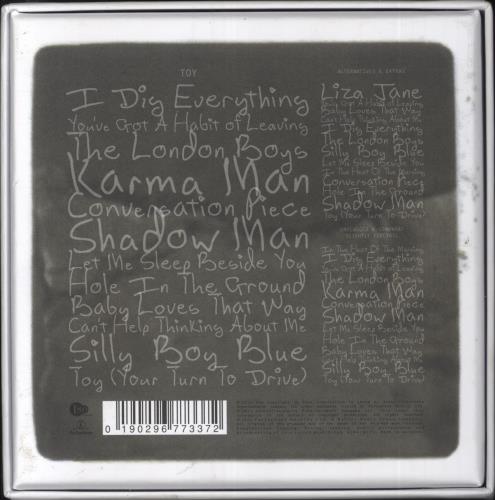 TOY
I Dig Everything
You've Got A Habit of Leaving
The London Boys
Karma Man
Conversation Piece
Shadow Man
Let Me Sleep Beside You
Hole In The Ground
Baby Loves That Way
Can't Help Thinking About Me
Silly Boy Blue
Toy (Your Turn To Drive)
ALTERNATIVES & EXTRAS
Liza Jane
You've Got A Habit of Leaving
Baby Loves That Way
Can't Help Thinking About Me
I Dig Everything
The London Boys
Silly Boy Blue
Let Me Sleep Beside You
In The Heat Of The Morning
Conversation Piece
Hole In The Ground
Shadow Man
Toy (Your Turn To Drive)
UNPLUGGED & SOMEWHAT
SLIGHTLY ELECTRIC
In The Heat Of The Morning
I Dig Everything
You've Got A Habit of Leaving
The London Boys
Karma Man
Conversation Piece
Shadow Man
Let Me Sleep Beside You
Hole In The Ground
Baby Loves That Way
Can't Help Thinking About Me
Silly Boy Blue
Toy (Your Turn To Drive)
ISO
Parlophone
0 190296 773372